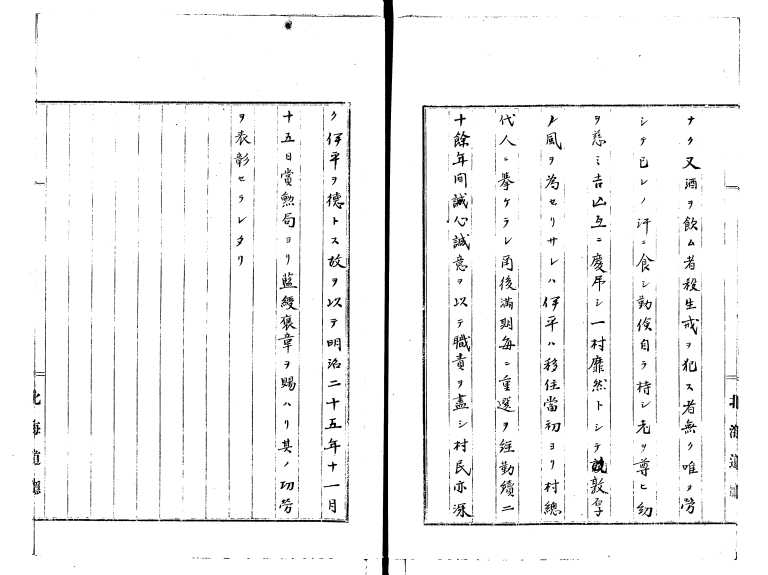 ナク又酒ヲ飲ム者殺生戒ヲ犯ス者無ク唯タ労
シテ已レノ汗ニ食シ勤倹自ラ持シ老ヲ尊ヒ幼
ヲ慈ミ吉凶互ニ慶吊シ一村靡然トシテ敦厚
ノ風ヲ為セリサレハ伊平ハ移住當初ヨリ村總
代人ニ挙ケラレ爾後滿期毎ニ重選ヲ経勤續二
十餘年間誠心誠意ヲ以テ職責ヲ盡シ村民亦深
ク伊平ヲ德トス故ヲ以テ明治二十五年十一月
十五日賞勲局ヨリ藍綬褒章ヲ賜ハリ其ノ功労
ヲ表彰セラレタリ
北海道廳
北海道廳